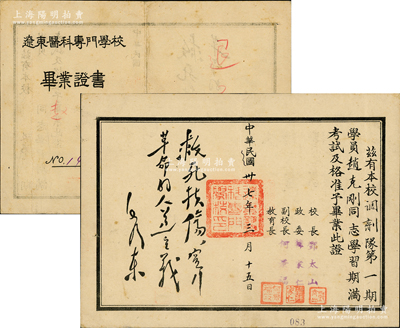 上海阳明拍卖
遼東醫科專門學校
畢業證書
NO. 19
茲有本校調劑隊第一期
學員趙克剛同志學習期滿
考試及格准予畢業此證
校長
政委
副校長
教育長
中華民國卅七年三月十五日
救死扶傷，實行
革命的人道主義
毛澤東
083